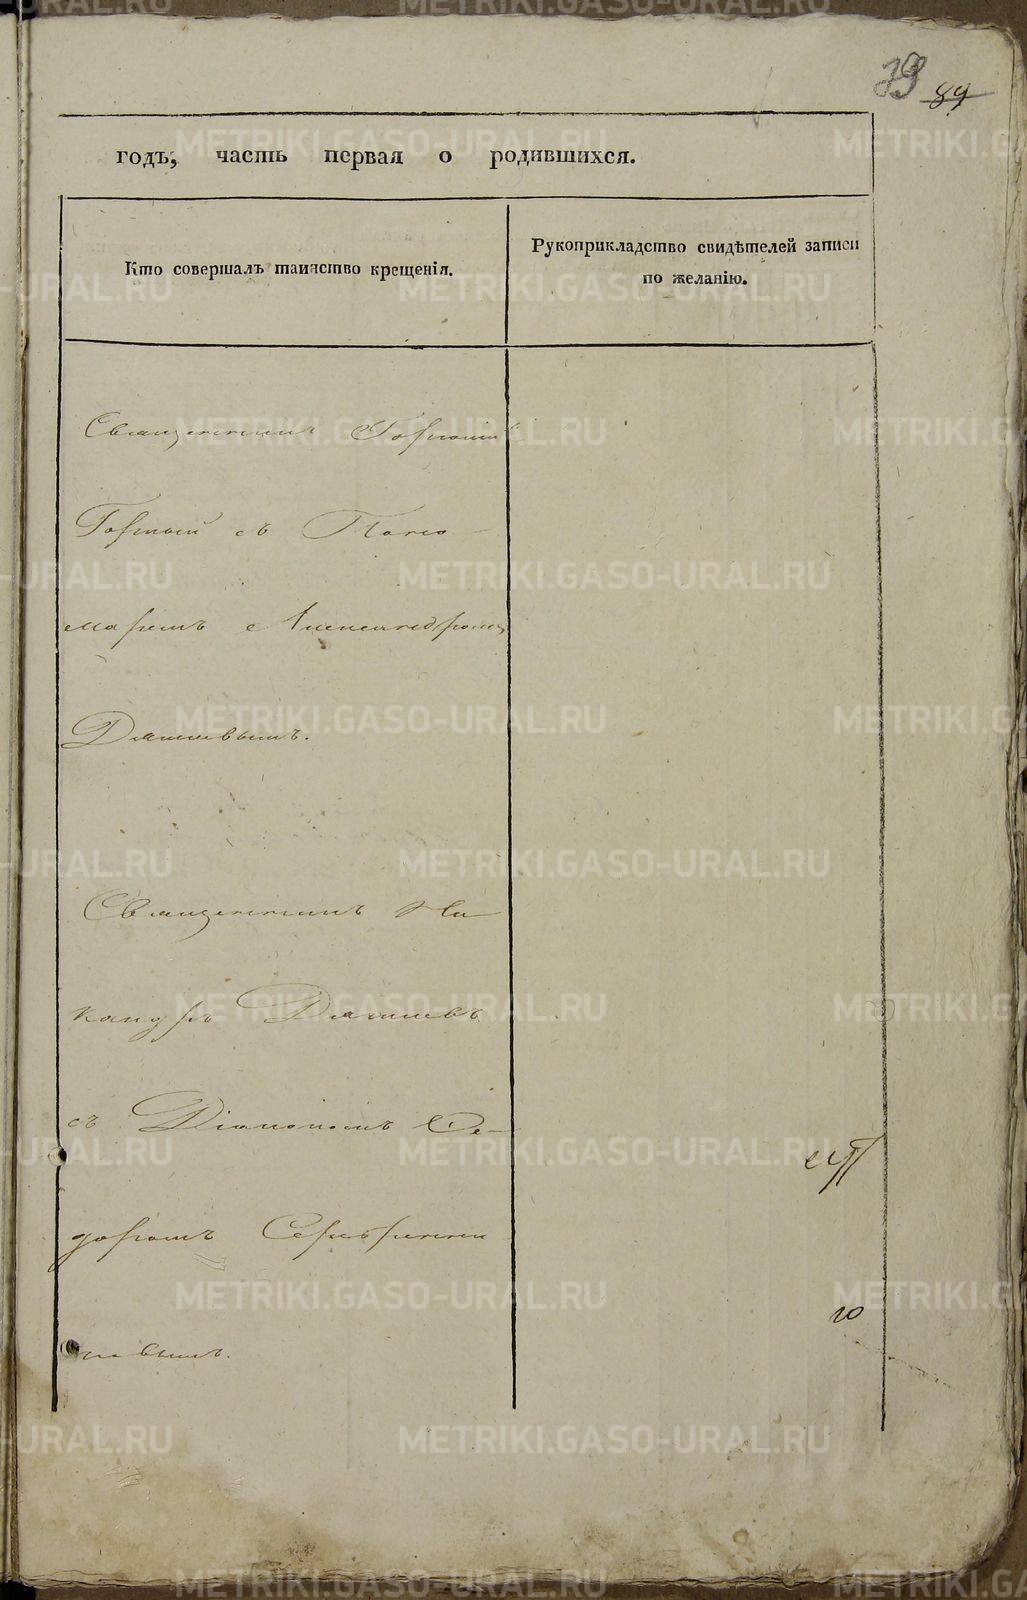 89
годъ, часть первая о родившихся.
Кто совершалъ таинство крещенія.
Рукоприкладство свидѣтелей записи
по желанію.
Священникъ
съ Поно-
маремъ Александромъ
Дягилевымъ.
Священникъ Ни-
кандръ Дягилевъ
съ Діакономъ Ѳе-
доромъ Серебренни-
ковымъ.
METRIKI.GASO-URAL.RU